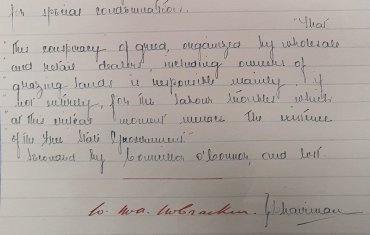 for special condemnation.
"That
"This conspiracy of greed, organized by wholesale
and retail dealers, including owners of
grazing lands is responsible mainly, if
not entirely, for the labour troubles which
at this critical moment menace the existence
of the Free State Government"
Seconded by Councillor O'Connor, and lost.
Chairman